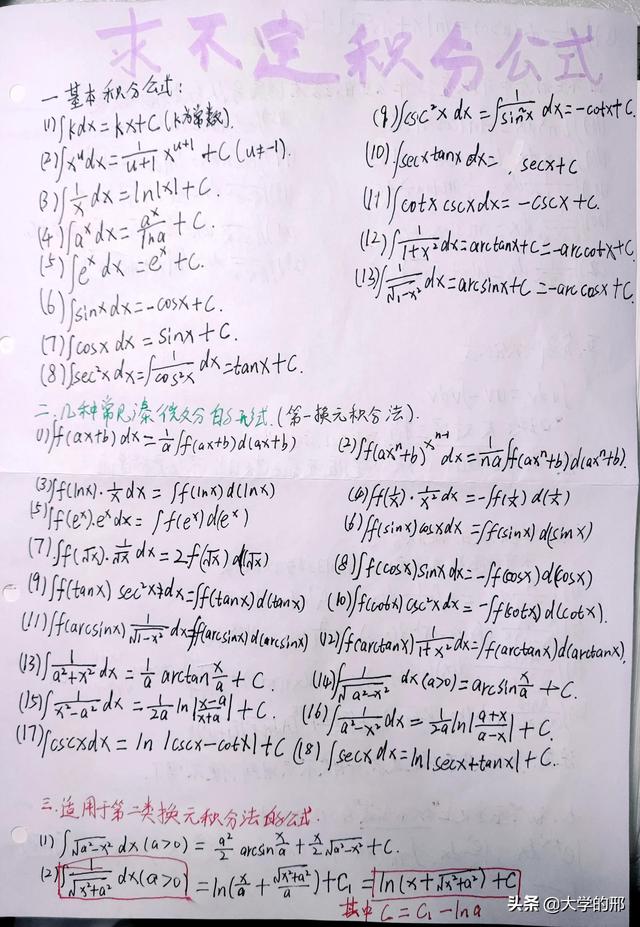 求不定积分公式
一 基本积分公式:
(1)∫kdx=kx+C(k为常数).
(2)∫x^u dx=\frac{1}{u+1}x^{u+1}+C(u≠-1).
(3)∫\frac{1}{x}dx=ln|x|+C.
(4)∫a^x dx=\frac{a^x}{lna}+C.
(5)∫e^x dx=e^x+C.
(6)∫sinxdx=-cosx+C.
(7)∫cosxdx=sinx+C.
(8)∫sec²xdx=∫\frac{1}{cos²x}dx=tanx+C.
(9)∫csc²xdx=∫\frac{1}{sin²x}dx=-cotx+C.
(10)∫secxtanxdx=secx+C
(11)∫cotxcscxdx=-cscx+C.
(12)∫\frac{1}{1+x²}dx=arctanx+C=-arccotx+C.
(13)∫\frac{1}{\sqrt{1-x²}}dx=arcsinx+C=-arccosx+C.
二.几种常见凑微分的形式.(第一换元积分法).
(1)∫f(ax+b)dx=\frac{1}{a}∫f(ax+b)d(ax+b) (2)∫f(ax^n+b)x^{n-1}dx=\frac{1}{na}∫f(ax^n+b)d(ax^n+b).
(3)∫f(lnx)·\frac{1}{x}dx=∫f(lnx)d(lnx) (4)∫f(\frac{1}{x})·\frac{1}{x²}dx=-∫f(\frac{1}{x})d(\frac{1}{x})
(5)∫f(e^x)·e^x dx=∫f(e^x)d(e^x) (6)∫f(sinx)cosxdx=∫f(sinx)d(sinx)
(7)∫f(\sqrt{x})·\frac{1}{\sqrt{x}}dx=2∫f(\sqrt{x})d(\sqrt{x}) (8)∫f(cosx)sinxdx=-∫f(cosx)d(cosx)
(9)∫f(tanx)sec²xdx=∫f(tanx)d(tanx) (10)∫f(cotx)csc²xdx=-∫f(cotx)d(cotx).
(11)∫f(arcsinx)\frac{1}{\sqrt{1-x²}}dx=∫f(arcsinx)d(arcsinx) (12)∫f(arctanx)\frac{1}{1+x²}dx=∫f(arctanx)d(arctanx).
(13)∫\frac{1}{a²+x²}dx=\frac{1}{a}arctan\frac{x}{a}+C. (14)∫\frac{1}{\sqrt{a²-x²}}dx(a>0)=arcsin\frac{x}{a}+C.
(15)∫\frac{1}{x²-a²}dx=\frac{1}{2a}ln|\frac{x-a}{x+a}|+C. (16)∫\frac{1}{a²-x²}dx=\frac{1}{2a}ln|\frac{a+x}{a-x}|+C.
(17)∫cscxdx=ln|cscx-cotx|+C (18)∫secxdx=ln|secx+tanx|+C.
三.适用于第二类换元积分法的公式.
(1)∫\sqrt{a²-x²}dx(a>0)=\frac{a²}{2}arcsin\frac{x}{a}+\frac{x}{2}\sqrt{a²-x²}+C.
(2)∫\frac{1}{\sqrt{x²+a²}}dx(a>0)=ln(\frac{x}{a}+\frac{\sqrt{x²+a²}}{a})+C₁=ln(x+\sqrt{x²+a²})+C
其中C=C₁-lna
头条@大学的邢